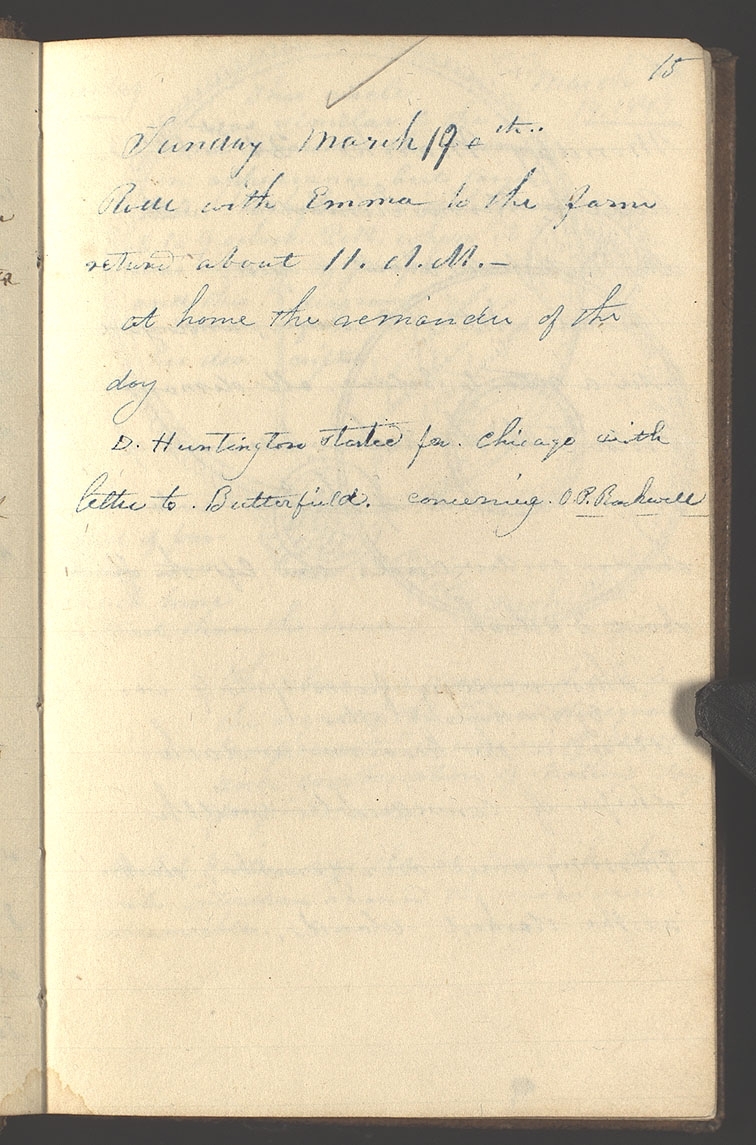 15
Sunday March 19th
Rode with Emma to the farm
returd about 11. A.M.—
at home the remainder of the
day
D. Huntington started for. Chicago with
letter to. Butterfield. concerning. O.P. Rockwell